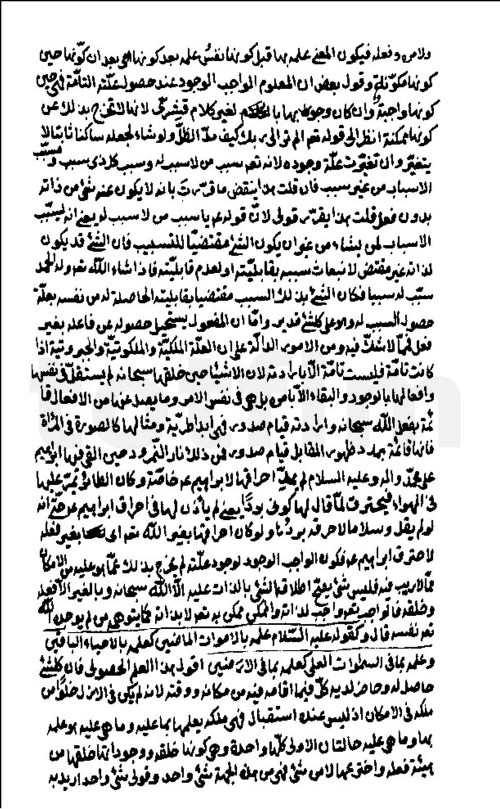 ولا من دفعله فيكون المعنى علمه بها قبل كونها نفس علمه بعد كونها اى بعد ان كونها حين
كونها مكونة وقول بعض ان المعلوم الواجب الوجود عند حصول علته التامة فهى حين
كونها واجبة وان كان وجوبها بها بالكلام لغيره كلام قشرى لانها لا تخرج بذلك عن
كونها ممكنة انظر الى قوله تعالى الم تر الى ربك كيف مد الظل ولو شاء لجعله ساكنا ثابتا لا
يتغير وان تغيرت علة وجوده لانه تعالى سبب من لا سبب له وسبب كل ذى سبب ومسبب
الاسباب من غير سبب فان قلت هذا ينقض ما قررت بانه لا يكون عنه شئ من ذاته
بدون فعل قلت هذا يقرر قولى لان قوله يا سبب من لا سبب له يعنى انه يسبب
الاسباب لمن يشاء من غير ان يكون الشئ مقتضيا للتسبيب فان الشئ قد يكون
لذاته غير مقتض لانبعاث سببه بقابليته او لعدم قابليته فاذا شاء الله تعالى وله الحمد
سبب له سببا فكان الشئ بذلك السبب مقتضيا بقابليته الحاصلة له من نفسه بعلة
حصول السبب له وهو على كل شئ قدير واما ان المفعول يستحيل حصوله عن فاعله بغير
فعل فمما لا شك فيه ومن الامور الدالة على ان العلة الملكية والملكوتية والجبروتية اذا
كانت تامة فليست تامة الا بارادته لان الاشياء حين خلقها سبحانه لم يستقل فى نفسها
وافعالها بالوجود والبقاء الا بامره بل هى فى نفس الامر وما يصدر عنها من الافعال قا
ئمة بفعل الله سبحانه وارادته قيام صدور فهى ابدا طرية ومثالها كالصورة فى المرآة
فانها قائمة بمدد ظهور المقابل قيام صدور فمن ذلك نار النمرود حين القى فيها ابراهيم
على محمد وآله وعليه السلام لم يحلها احراقها لابراهيم خاصة وكان الطائر يمر عليها
فى الهواء فيحترق لما قال لها كونى بردا يعنى لم ياذن لها فى احراق ابراهيم حتى انه
لو لم يقل وسلاما لاحرقه بردها ولو كان احراقها بغير الله تعالى اى بغير فعله
لاحترق ابراهيم فكون الواجب الوجود لوجود علته لم يخرج بذلك عما هو عليه من الامكان
مما لا ريب فيه فليس شئ يصح اطلاقها لشئ بالذات عليه الا الله سبحانه وبالغير الا فعله
وخلقه فالواجب تعالى واجب لذاته والممكن ممكن به تعالى لا بذاته كما يتوهمه من لم يوحد الله
تعالى نفسه قال وكقوله عليه السلام علمه بالاموات الماضين كعلمه بالاحياء الباقين
وعلمه بما فى السموات العلى كعلمه بما فى الارضين اقول هذا العلم الحصولى فان كل شئ
حاصل له وحاضر لديه كل فيما اقامه فيه من مكانه ووقته لانه لم يكن فى الازل خلوا من
ملكه فى الامكان اذ ليس عنده استقبال فهى ملكه يعلمها بما عليه وما هى عليه هو علمه
بها وما هى عليه حالتان الاولى كلها واحدة وهى كونها خلقه ووجوداتها خلقها من
هيئة فعله واخترعها لا من شئ فهى من هذه الجهة شئ واحد وقولى شئ واحد اريد به